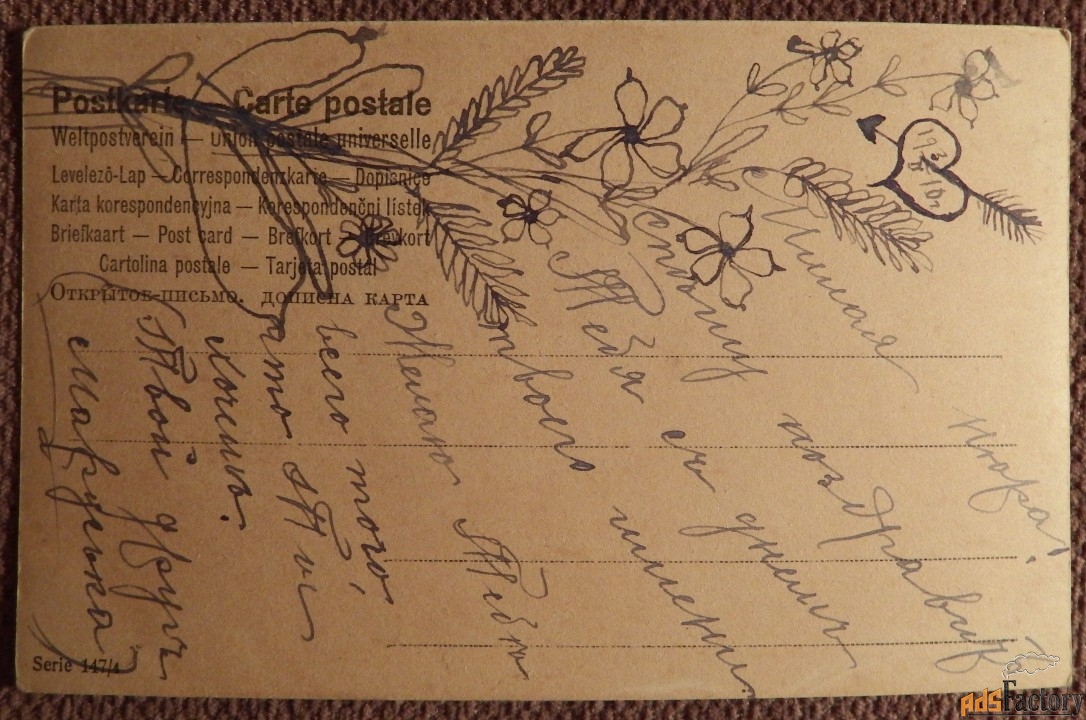 Postkarte — Carte postale
Weltpostverein — Union postale universelle
Levelező-Lap — Correspondenzkarte — Dopisnice
Karta korespondencyjna — Korespondenční lístek
Briefkaart — Post card — Brefkort — Brevkort
Cartolina postale — Tarjeta postal
Открытое письмо. дописна карта
Милая Нюра!
Спешу поздравить
Тебя съ днемъ
твоего имени.
Желаю Тебѣ
всего того,
что Ты
хочешь.
Твой другъ
Маруська
Serie 147/4
adsFactory